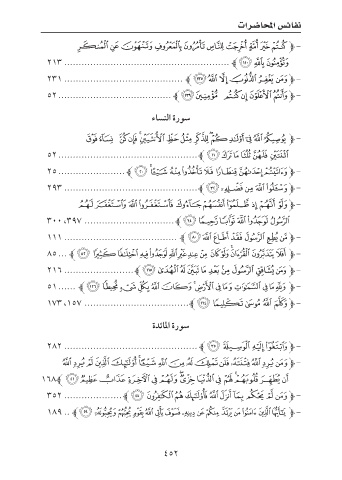 نفائس المحاضرات
- ﴿ كُنتُمْ خَيْرَ أُمَّةٍ أُخْرِجَتْ لِلنَّاسِ تَأْمُرُونَ بِالْمَعْرُوفِ وَتَنْهَوْنَ عَنِ الْمُنكَرِ
وَتُؤْمِنُونَ بِاللَّهِ ﴿١١٠﴾ ﴾ ٢١٣
- ﴿ وَمَن يَغْفِرُ الذُّنُوبَ إِلَّا اللَّهُ ﴿١٣٥﴾ ﴾ ٢٣١
- ﴿ وَأَنتُمُ الْأَعْلَوْنَ إِن كُنتُم مُّؤْمِنِينَ ﴿١٣٩﴾ ﴾ ٥٢
سورة النساء
- ﴿ يُوصِيكُمُ اللَّهُ فِي أَوْلَادِكُمْ لِلذَّكَرِ مِثْلُ حَظِّ الْأُنثَيَيْنِ فَإِن كُنَّ نِسَاءً فَوْقَ
اثْنَتَيْنِ فَلَهُنَّ ثُلُثَا مَا تَرَكَ ﴿١١﴾ ﴾ ٥٢
- ﴿ وَءَاتَيْتُمْ إِحْدَاهُنَّ قِنطَارًا فَلَا تَأْخُذُوا مِنْهُ شَيْئًا ﴿٢٠﴾ ﴾ ٢٥
- ﴿ وَسْئَلُوا اللَّهَ مِن فَضْلِهِ ﴿٣٢﴾ ﴾ ٢٩٣
- ﴿ وَلَوْ أَنَّهُمْ إِذ ظَّلَمُوا أَنفُسَهُمْ جَاءُوكَ فَاسْتَغْفَرُوا اللَّهَ وَاسْتَغْفَرَ لَهُمُ
الرَّسُولُ لَوَجَدُوا اللَّهَ تَوَّابًا رَّحِيمًا ﴿٦٤﴾ ﴾ ٣٠٠، ٣٩٧
- ﴿ مَّن يُطِعِ الرَّسُولَ فَقَدْ أَطَاعَ اللَّهَ ﴿٨٠﴾ ﴾ ١١١
- ﴿ أَفَلَا يَتَدَبَّرُونَ الْقُرْءَانَ وَلَوْ كَانَ مِنْ عِندِ غَيْرِ اللَّهِ لَوَجَدُوا فِيهِ اخْتِلَافًا كَثِيرًا ﴿٨٢﴾ ﴾ ٨٥
- ﴿ وَمَن يُشَاقِقِ الرَّسُولَ مِنْ بَعْدِ مَا تَبَيَّنَ لَهُ الْهُدَى ﴿١١٥﴾ ﴾ ٢١٦
- ﴿ وَلِلَّهِ مَا فِي السَّمَاوَاتِ وَمَا فِي الْأَرْضِ وَكَانَ اللَّهُ بِكُلِّ شَيْءٍ مُّحِيطًا ﴿١٢٦﴾ ﴾ ٥١
- ﴿ وَكَلَّمَ اللَّهُ مُوسَى تَكْلِيمًا ﴿١٦٤﴾ ﴾ ١٥٧، ١٧٣
سورة المائدة
- ﴿ وَابْتَغُوا إِلَيْهِ الْوَسِيلَةَ ﴿٣٥﴾ ﴾ ٢٨٢
- ﴿ وَمَن يُرِدِ اللَّهُ فِتْنَتَهُ فَلَن تَمْلِكَ لَهُ مِنَ اللَّهِ شَيْئًا أُولَئِكَ الَّذِينَ لَمْ يُرِدِ اللَّهُ
أَن يُطَهِّرَ قُلُوبَهُمْ لَهُمْ فِي الدُّنْيَا خِزْيٌ وَلَهُمْ فِي الْآخِرَةِ عَذَابٌ عَظِيمٌ ﴿٤١﴾ ﴾ ١٦٨
- ﴿ وَمَن لَّمْ يَحْكُم بِمَا أَنزَلَ اللَّهُ فَأُولَئِكَ هُمُ الْكَافِرُونَ ﴿٤٤﴾ ﴾ ٣٥٢
- ﴿ يَاأَيُّهَا الَّذِينَ ءَامَنُوا مَن يَرْتَدَّ مِنكُمْ عَن دِينِهِ فَسَوْفَ يَأْتِي اللَّهُ بِقَوْمٍ يُحِبُّهُمْ وَيُحِبُّونَهُ ﴿٥٤﴾ ﴾ ١٨٩
٤٥٢